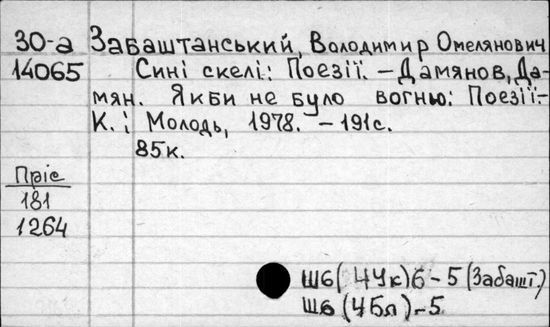 30-а Забаштанський, Володимир Омелянович
14065 Сині скелі: Поезії. – Дамянов, Да-
мян. Якби не було вогню: Поезії.–
К.: Молодь, 1978. – 191с.
85к.
Пріс
181
1264
Ш6(4Ук)6-5 (Забашт.)
Ш6(4Бл)-5